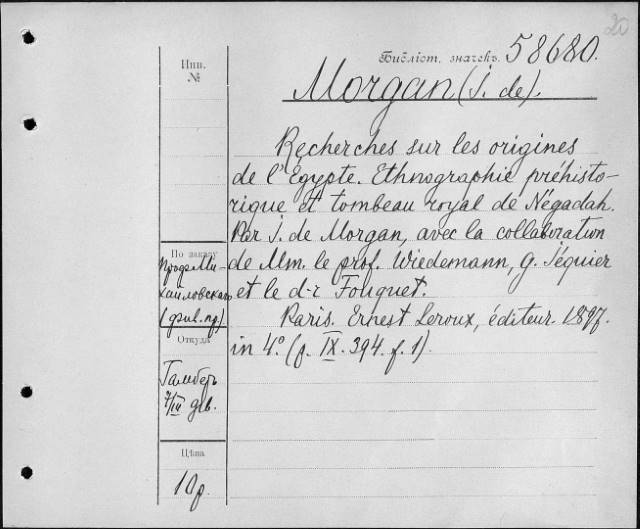 20
Библіот. значекъ. 58680.
Инв.
№
Morgan (J. de).
Recherches sur les origines
de l'Égypte. Ethnographie préhisto-
rique et tombeau royal de Négadah.
Par J. de Morgan, avec la collaboration
de Mm. le prof. Wiedemann, G. Jéquier
et le d-r Fouquet.
Paris. Ernest Leroux, éditeur. 1897.
in 4.° (p. IX. 394. f. 1).
По заказу
Проф. Ми-
хайловскаго
Откуда
Цѣна
10 р.